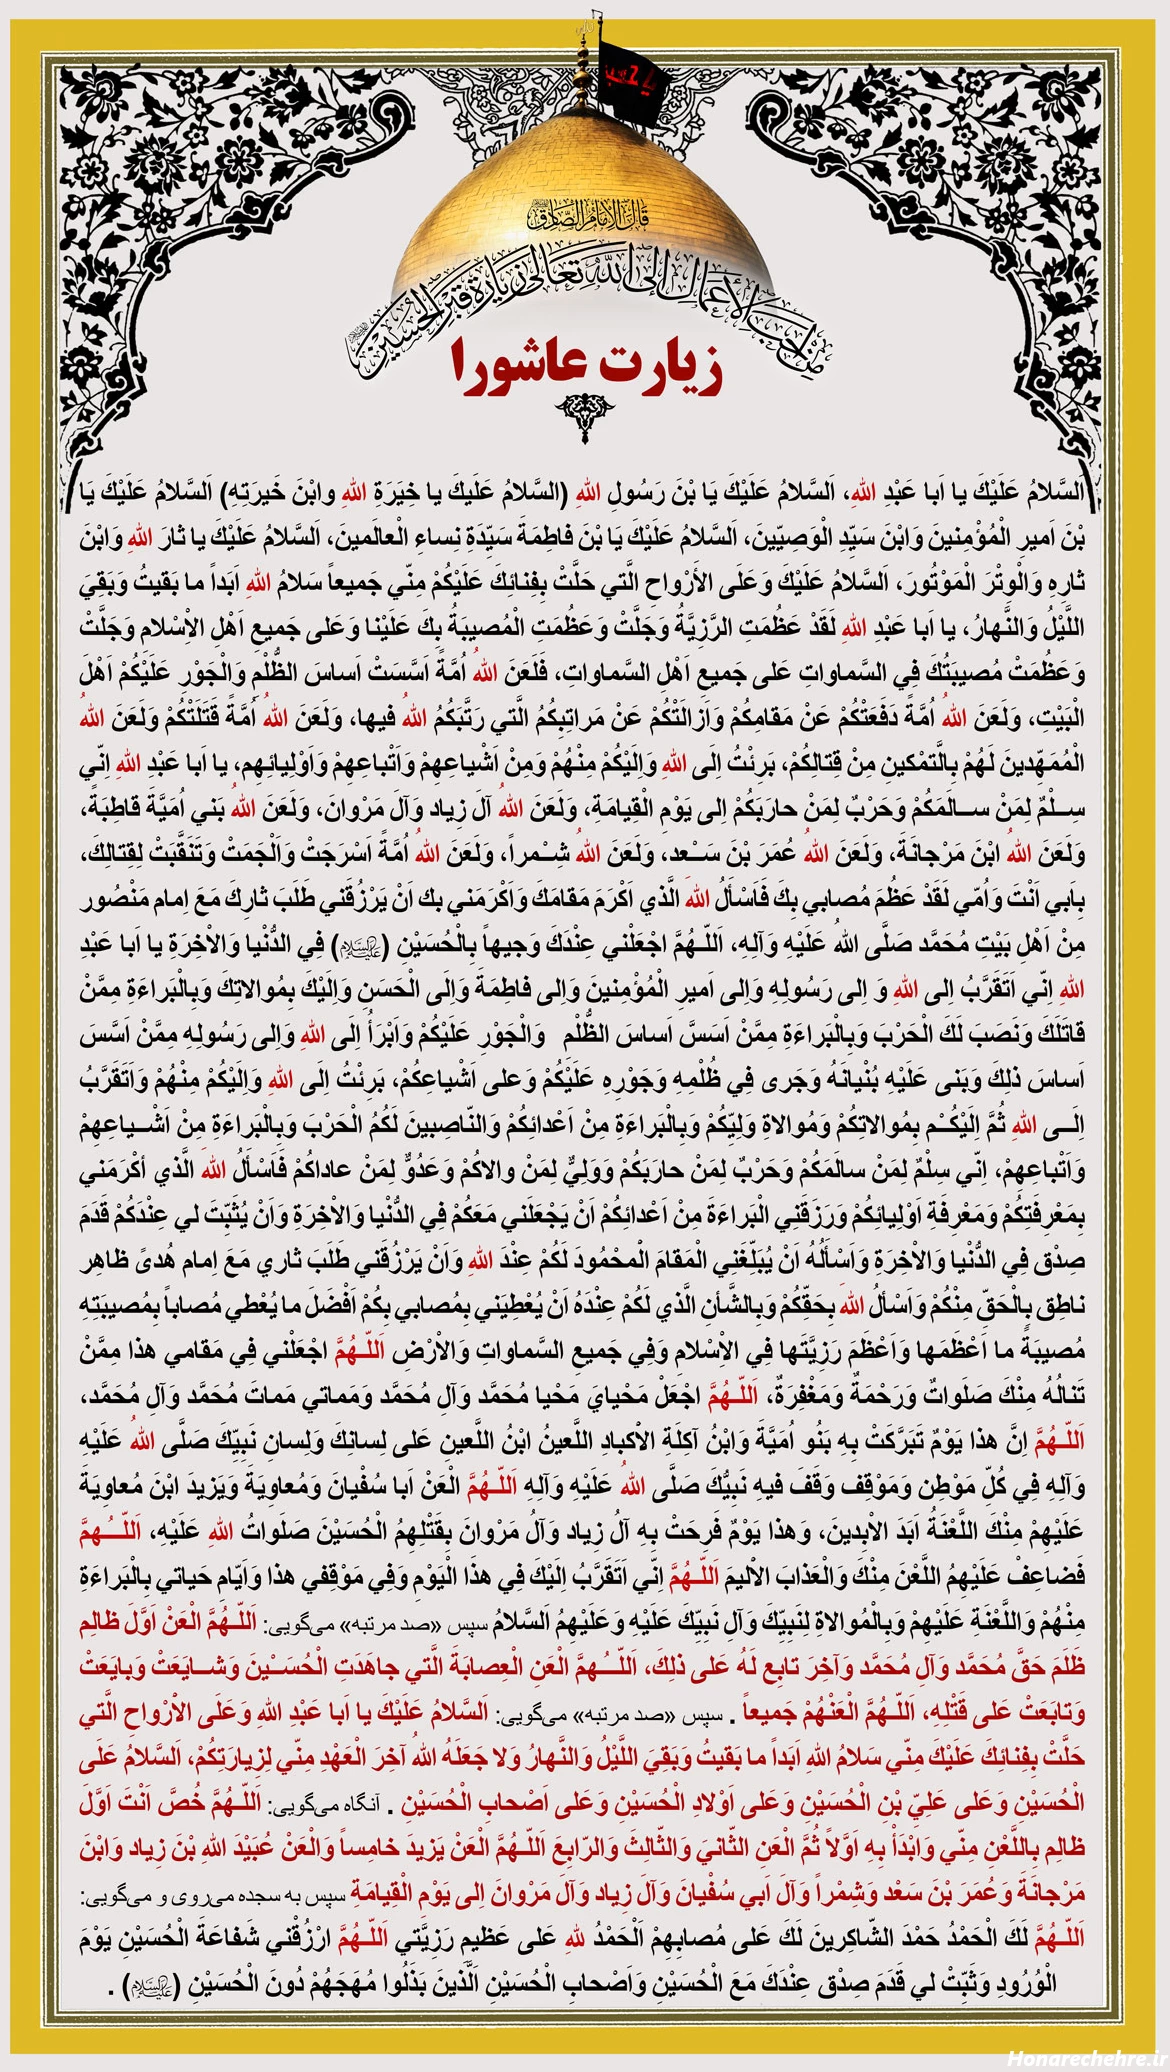 یا حسین
قالَ الإمامُ الصّادِق
مِن اَحَبِّ الأعمالِ إلَی اللهِ تَعالی زیارَةُ قَبرِ الحُسَین
زیارت عاشورا
اَلسَّلامُ عَلَيْكَ يا اَبا عَبْدِ اللهِ، اَلسَّلامُ عَلَيْكَ يَا بْنَ رَسُولِ اللهِ (السَّلامُ عَلَيكَ يا خِيَرَةِ اللهِ وابْنَ خَيرَتِهِ) اَلسَّلامُ عَلَيْكَ يَا
بْنَ اَميرِ الْمُؤْمِنينَ وَابْنَ سَيِّدِ الْوَصِيّينَ، اَلسَّلامُ عَلَيْكَ يَا بْنَ فاطِمَةَ سَيِّدَةِ نِساءِ الْعالَمينَ، اَلسَّلامُ عَلَيْكَ يا ثارَ اللهِ وَابْنَ
ثارِهِ وَالْوِتْرَ الْمَوْتُورَ، اَلسَّلامُ عَلَيْكَ وَعَلَى الأَرْواحِ الَّتي حَلَّتْ بِفِنائِكَ عَلَيْكُمْ مِنّي جَميعاً سَلامُ اللهِ اَبَداً ما بَقيتُ وَبَقِيَ
اللَّيْلُ وَالنَّهارُ، يا اَبا عَبْدِ اللهِ لَقَدْ عَظُمَتِ الرَّزِيَّةُ وَجَلَّتْ وَعَظُمَتِ الْمُصيبَةُ بِكَ عَلَيْنا وَعَلى جَميعِ اَهْلِ الاِْسْلامِ وَجَلَّتْ
وَعَظُمَتْ مُصيبَتُكَ فِي السَّماواتِ عَلى جَميعِ اَهْلِ السَّماواتِ، فَلَعَنَ اللهُ اُمَّةً اَسَّسَتْ اَساسَ الظُّلْمِ وَالْجَوْرِ عَلَيْكُمْ اَهْلَ
الْبَيْتِ، وَلَعَنَ اللهُ اُمَّةً دَفَعَتْكُمْ عَنْ مَقامِكُمْ وَاَزالَتْكُمْ عَنْ مَراتِبِكُمُ الَّتي رَتَّبَكُمُ اللهُ فيها، وَلَعَنَ اللهُ اُمَّةً قَتَلَتْكُمْ وَلَعَنَ اللهُ
الْمُمَهِّدينَ لَهُمْ بِالتَّمْكينِ مِنْ قِتالِكُمْ، بَرِئْتُ اِلَى اللهِ وَاِلَيْكُمْ مِنْهُمْ وَمِنْ اَشْياعِهِمْ وَاَتْباعِهِمْ وَاَوْلِيائِهِم، يا اَبا عَبْدِ اللهِ اِنّي
سِـلْمٌ لِمَنْ سـالَمَكُمْ وَحَرْبٌ لِمَنْ حارَبَكُمْ اِلى يَوْمِ الْقِيامَةِ، وَلَعَنَ اللهُ آلَ زِياد وَآلَ مَرْوانَ، وَلَعَنَ اللهُ بَني اُمَيَّةَ قاطِبَةً،
وَلَعَنَ اللهُ ابْنَ مَرْجانَةَ، وَلَعَنَ اللهُ عُمَرَ بْنَ سَـعْد، وَلَعَنَ اللهُ شِـمْراً، وَلَعَنَ اللهُ اُمَّةً اَسْرَجَتْ وَاَلْجَمَتْ وَتَنَقَّبَتْ لِقِتالِكَ،
بِاَبي اَنْتَ وَاُمّي لَقَدْ عَظُمَ مُصابي بِكَ فَاَسْأَلُ اللهَ الَّذي اَكْرَمَ مَقامَكَ وَاَكْرَمَني بك اَنْ يَرْزُقَني طَلَبَ ثارِكَ مَعَ اِمام مَنْصُور
مِنْ اَهْلِ بَيْتِ مُحَمَّد صَلَّى اللهُ عَلَيْهِ وَآلِهِ، اَللّـهُمَّ اجْعَلْني عِنْدَكَ وَجيهاً بِالْحُسَيْنِ (علیه‌السلام) فِي الدُّنْيا وَالاْخِرَةِ يا اَبا عَبْدِ
اللهِ اِنّي اَتَقَرَّبُ اِلى اللهِ وَ اِلى رَسُولِهِ وَاِلى اَميرِ الْمُؤْمِنينَ وَاِلى فاطِمَةَ وَاِلَى الْحَسَنِ وَاِلَيْكَ بِمُوالاتِكَ وَبِالْبَراءَةِ مِمَّنْ
قاتَلَكَ وَنَصَبَ لَكَ الْحَرْبَ وَبِالْبَراءَةِ مِمَّنْ اَسَسَّ اَساسَ الظُّلْمِ وَالْجَوْرِ عَلَيْكُمْ وَاَبْرَأُ اِلَى اللهِ وَاِلى رَسُولِهِ مِمَّنْ اَسَّسَ
اَساسَ ذلِكَ وَبَنى عَلَيْهِ بُنْيانَهُ وَجَرى فِي ظُلْمِهِ وَجَوْرِهِ عَلَيْكُمْ وَعلى اَشْياعِكُمْ، بَرِئْتُ اِلَى اللهِ وَاِلَيْكُمْ مِنْهُمْ وَاَتَقَرَّبُ
اِلَــى اللهِ ثُمَّ اِلَيْكُــم بِمُوالاتِكُمْ وَمُوالاةِ وَلِيِّكُمْ وَبِالْبَراءَةِ مِنْ اَعْدائِكُمْ وَالنّاصِبينَ لَكُمُ الْحَرْبَ وَبِالْبَراءَةِ مِنْ اَشْـياعِهِمْ
وَاَتْباعِهِمْ، اِنّي سِلْمٌ لِمَنْ سالَمَكُمْ وَحَرْبٌ لِمَنْ حارَبَكُمْ وَوَلِيٌّ لِمَنْ والاكُمْ وَعَدُوٌّ لِمَنْ عاداكُمْ فَاَسْأَلُ اللهَ الَّذي أكْرَمَني
بِمَعْرِفَتِكُمْ وَمَعْرِفَةِ اَوْلِيائِكُمْ وَرَزَقَنِي الْبَراءَةَ مِنْ اَعْدائِكُمْ اَنْ يَجْعَلَني مَعَكُمْ فِي الدُّنْيا وَالاْخِرَةِ وَاَنْ يُثَبِّتَ لي عِنْدَكُمْ قَدَمَ
صِدْق فِي الدُّنْيا وَالاْخِرَةِ وَاَسْأَلُهُ اَنْ يُبَلِّغَنِي الْمَقامَ الَْمحْمُودَ لَكُمْ عِنْدَ اللهِ وَاَنْ يَرْزُقَني طَلَبَ ثاري مَعَ اِمام هُدىً ظاهِر
ناطِق بِالْحَقِّ مِنْكُمْ وَاَسْألُ اللهَ بِحَقِّكُمْ وَبِالشَّأنِ الَّذي لَكُمْ عِنْدَهُ اَنْ يُعْطِيَني بِمُصابي بِكُمْ اَفْضَلَ ما يُعْطي مُصاباً بِمُصيبَتِهِ
مُصيبَةً ما اَعْظَمَها وَاَعْظَمَ رَزِيَّتَها فِي الاِْسْلامِ وَفِي جَميعِ السَّماواتِ وَالاْرْضِ اَللّـهُمَّ اجْعَلْني فِي مَقامي هذا مِمَّنْ
تَنالُهُ مِنْكَ صَلَواتٌ وَرَحْمَةٌ وَمَغْفِرَةٌ، اَللّـهُمَّ اجْعَلْ مَحْيايَ مَحْيا مُحَمَّد وَآلِ مُحَمَّد وَمَماتي مَماتَ مُحَمَّد وَآلِ مُحَمَّد،
اَللّـهُمَّ اِنَّ هذا يَوْمٌ تَبَرَّكَتْ بِهِ بَنُو اُمَيَّةَ وَابْنُ آكِلَةِ الاْكبادِ اللَّعينُ ابْنُ اللَّعينِ عَلى لِسانِكَ وَلِسانِ نَبِيِّكَ صَلَّى اللهُ عَلَيْهِ
وَآلِهِ فِي كُلِّ مَوْطِن وَمَوْقِف وَقَفَ فيهِ نَبِيُّكَ صَلَّى اللهُ عَلَيْهِ وَآلِهِ اَللّـهُمَّ الْعَنْ اَبا سُفْيانَ وَمُعاوِيَةَ وَيَزيدَ ابْنَ مُعاوِيَةَ
عَلَيْهِمْ مِنْكَ اللَّعْنَةُ اَبَدَ الاْبِدينَ، وَهذا يَوْمٌ فَرِحَتْ بِهِ آلُ زِياد وَآلُ مَرْوانَ بِقَتْلِهِمُ الْحُسَيْنَ صَلَواتُ اللهِ عَلَيْهِ، اَللّـهُمَّ
فَضاعِفْ عَلَيْهِمُ اللَّعْنَ مِنْكَ وَالْعَذابَ الاْليمَ اَللّـهُمَّ اِنّي اَتَقَرَّبُ اِلَيْكَ فِي هذَا الْيَوْمِ وَفِي مَوْقِفي هذا وَاَيّامِ حَياتي بِالْبَراءَةِ
مِنْهُمْ وَاللَّعْنَةِ عَلَيْهِمْ وَبِالْمُوالاةِ لِنَبِيِّكَ وَآلِ نَبِيِّكَ عَلَيْهِ وَعَلَيْهِمُ اَلسَّلامُ سپس «صد مرتبه» می‌گویی: اَللّـهُمَّ الْعَنْ اَوَّلَ ظالِم
ظَلَمَ حَقَّ مُحَمَّد وَآلِ مُحَمَّد وَآخِرَ تابِع لَهُ عَلى ذلِكَ، اَللّـهُمَّ الْعَنِ الْعِصابَةَ الَّتي جاهَدَتِ الْحُسَـيْنَ وَشـايَعَتْ وَبايَعَتْ
وَتابَعَتْ عَلى قَتْلِهِ، اَللّـهُمَّ الْعَنْهُمْ جَميعاً . سپس «صد مرتبه» می‌گویی: اَلسَّلامُ عَلَيْكَ يا اَبا عَبْدِ اللهِ وَعَلَى الاْرْواحِ الَّتي
حَلَّتْ بِفِنائِكَ عَلَيْكَ مِنّي سَلامُ اللهِ اَبَداً ما بَقيتُ وَبَقِيَ اللَّيْلُ وَالنَّهارُ وَلا جَعَلَهُ اللهُ آخِرَ الْعَهْدِ مِنّي لِزِيارَتِكُمْ، اَلسَّلامُ عَلَى
الْحُسَيْنِ وَعَلى عَلِيِّ بْنِ الْحُسَيْنِ وَعَلى اَوْلادِ الْحُسَيْنِ وَعَلى اَصْحابِ الْحُسَيْنِ . آنگاه می‌گویی: اَللّـهُمَّ خُصَّ اَنْتَ اَوَّلَ
ظالِم بِاللَّعْنِ مِنّي وَابْدَأْ بِهِ اَوَّلاً ثُمَّ الْعَنِ الثّانيَ وَالثّالِثَ وَالرّابِعَ اَللّـهُمَّ الْعَنْ يَزيدَ خامِساً وَالْعَنْ عُبَيْدَ اللهِ بْنَ زِياد وَابْنَ
مَرْجانَةَ وَعُمَرَ بْنَ سَعْد وَشِمْراً وَآلَ اَبي سُفْيانَ وَآلَ زِياد وَآلَ مَرْوانَ اِلى يَوْمِ الْقِيامَةِ سپس به سجده می‌روی و می‌گویی:
اَللّـهُمَّ لَكَ الْحَمْدُ حَمْدَ الشّاكِرينَ لَكَ عَلى مُصابِهِمْ اَلْحَمْدُ للهِ عَلى عَظيمِ رَزِيَّتي اَللّـهُمَّ ارْزُقْني شَفاعَةَ الْحُسَيْنِ يَوْمَ
الْوُرُودِ وَثَبِّتْ لي قَدَمَ صِدْق عِنْدَكَ مَعَ الْحُسَيْنِ وَاَصْحابِ الْحُسَيْنِ اَلَّذينَ بَذَلُوا مُهَجَهُمْ دُونَ الْحُسَيْنِ (علیه‌السلام) .
Honarechehre.ir